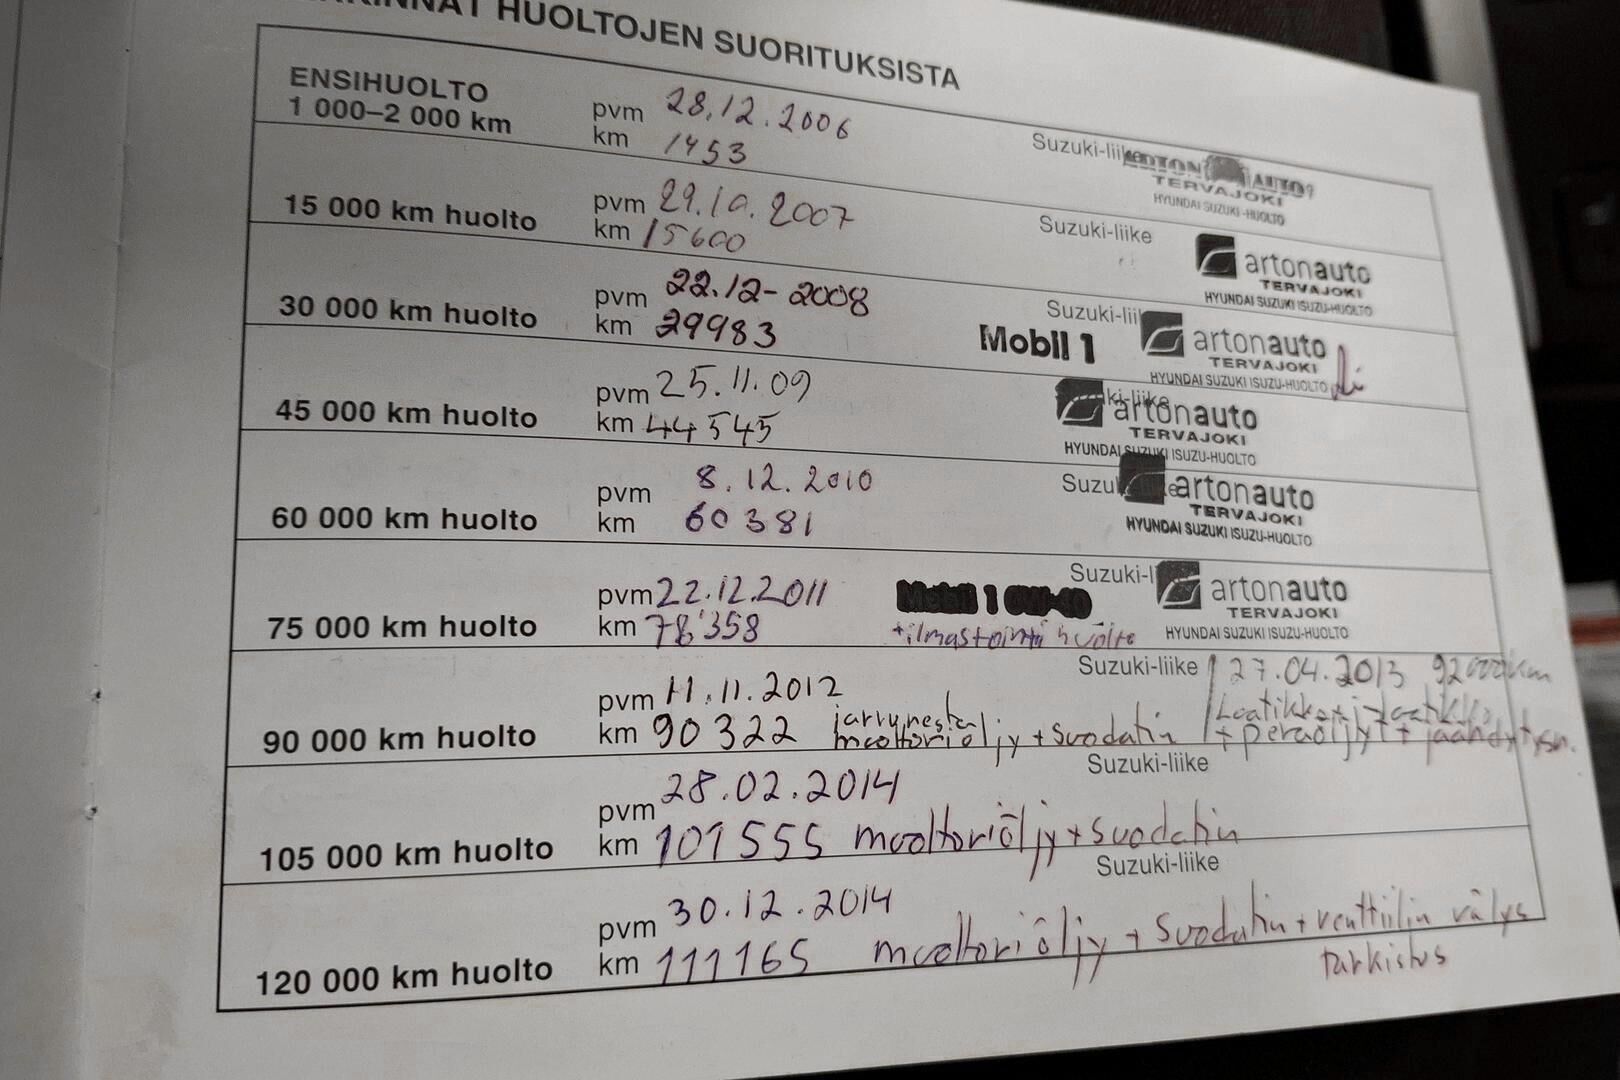 HUOLTOJEN SUORITUKSISTA
ENSIHUOLTO
1 000–2 000 km
pvm 28.12.2006
km 1453
Suzuki-liike
AUTO
TERVAJOKI
HYUNDAI SUZUKI -HUOLTO
15 000 km huolto
pvm 29.10.2007
km 15600
Suzuki-liike
artonauto
TERVAJOKI
HYUNDAI SUZUKI ISUZU-HUOLTO
30 000 km huolto
pvm 22.12-2008
km 29983
Suzuki-lii
Mobil 1
artonauto
TERVAJOKI
HYUNDAI SUZUKI ISUZU-HUOLTO
45 000 km huolto
pvm 25.11.09
km 44545
ki-liike
artonauto
TERVAJOKI
HYUNDAI SUZUKI ISUZU-HUOLTO
60 000 km huolto
pvm 8.12.2010
km 60381
Suzu
artonauto
TERVAJOKI
HYUNDAI SUZUKI ISUZU-HUOLTO
75 000 km huolto
pvm 22.12.2011
km 78'358
Mobil 1 0W-40
+ilmastointi huolto
Suzuki-l
artonauto
TERVAJOKI
HYUNDAI SUZUKI ISUZU-HUOLTO
90 000 km huolto
pvm 11.11.2012
km 90322 jarrunesta
moottoriöljy + suodatin
Suzuki-liike
27.04.2013 92000km
+ peräöljyt + jäähdytysn.
105 000 km huolto
pvm 28.02.2014
km 101555 moottoriöljy + suodatin
Suzuki-liike
120 000 km huolto
pvm 30.12.2014
km 111165 moottoriöljy + suodatin + venttiilin välys
tarkistus
Suzuki-liike